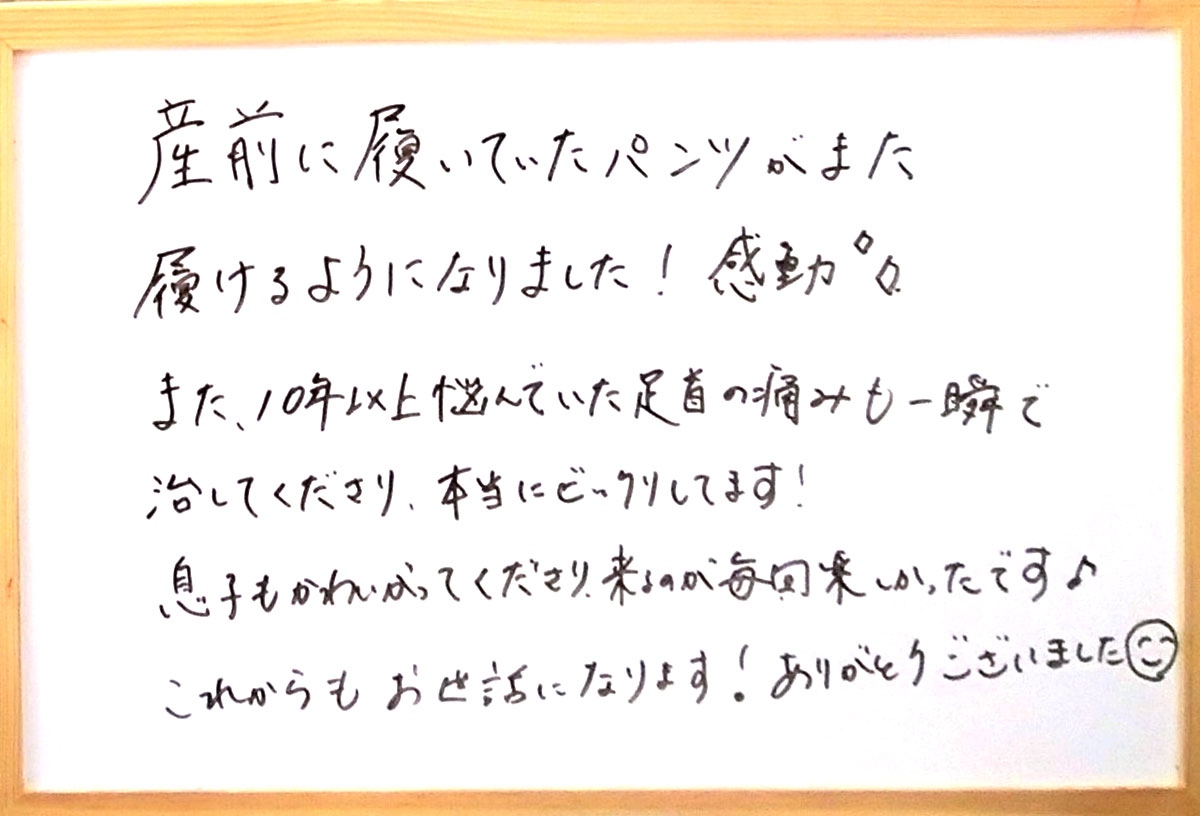 産前に履いていたパンツがまた
履けるようになりました！感動
また、10年以上悩んでいた足首の痛みも一瞬で
治してくださり、本当にビックリしてます！
息子もかわいがってくださり、来るのが毎回楽しかったです♪
これからもお世話になります！ありがとうございました